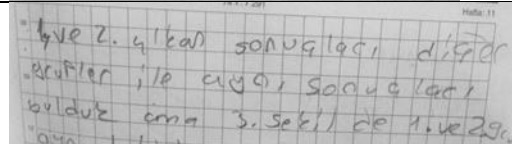 Hafta: 11
1.ve 2. çıkan sonuçları diğer
gruplar ile aynı sonuçları
bulduk ama 3. şekil de 1. ve 2.